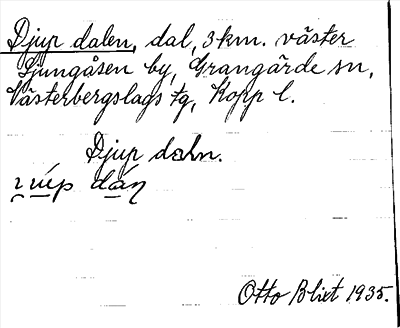 Djup dalen, dal, 3 km. väster
Ljungåsen by, Grangärde sn,
Västerbergslags tg, Kopp l.
Djup daln.
Otto Blixt 1935.